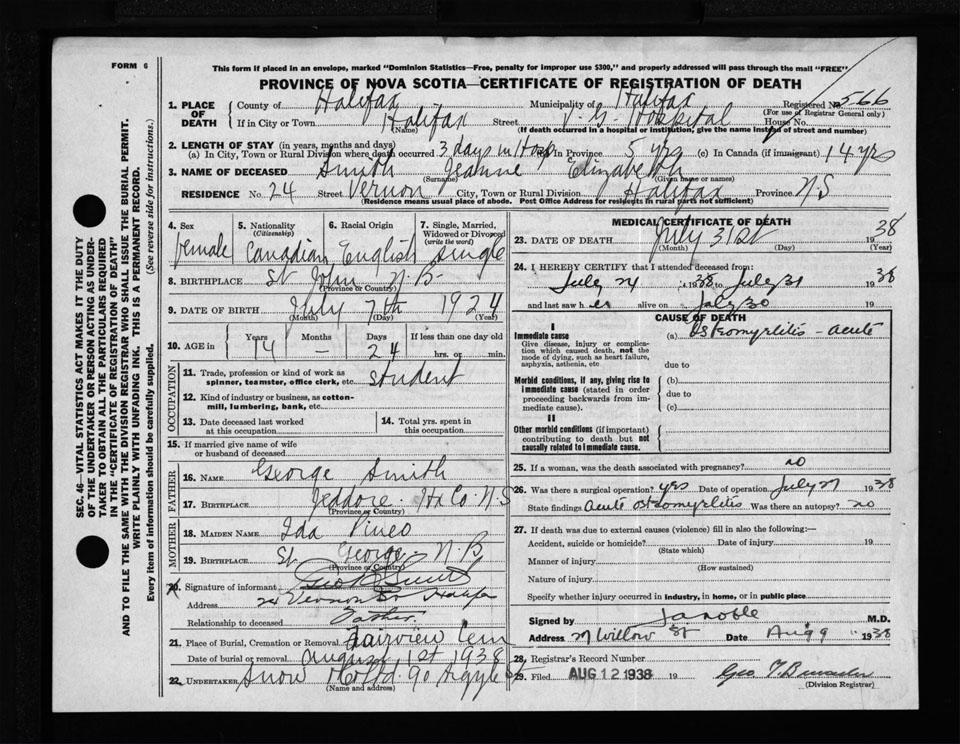 FORM 6
This form if placed in an envelope, marked "Dominion Statistics—Free, penalty for improper use $300," and properly addressed will pass through the mail "FREE"
PROVINCE OF NOVA SCOTIA—CERTIFICATE OF REGISTRATION OF DEATH
1. PLACE OF DEATH County of Halifax Municipality of Halifax Registered No 566
(For use of Registrar General only)
If in City or Town Halifax Street V. G. Hospital House No.
(Name) (If death occurred in a hospital or institution, give the name instead of street and number)
2. LENGTH OF STAY (in years, months and days)
(a) In City, Town or Rural Division where death occurred 3 days in Hosp In Province 5 yrs (c) In Canada (if immigrant) 14 yrs
3. NAME OF DECEASED Smith Jeanne Elizabeth
(Surname) (Given name or names)
RESIDENCE No. 24 Street Vernon City, Town or Rural Division Halifax Province N S
(Residence means usual place of abode. Post Office Address for residents in rural parts not sufficient)
4. Sex 5. Nationality (Citizenship) 6. Racial Origin 7. Single, Married, Widowed or Divorced (write the word)
Female Canadian English Single
8. BIRTHPLACE St John N. B-
(Province or Country)
9. DATE OF BIRTH July 7th 1924
(Month) (Day) (Year)
10. AGE in Years 14 Months – Days 24 If less than one day old hrs. or min.
OCCUPATION
11. Trade, profession or kind of work as spinner, teamster, office clerk, etc. student
12. Kind of industry or business, as cotton-mill, lumbering, bank, etc.
13. Date deceased last worked at this occupation
14. Total yrs. spent in this occupation
15. If married give name of wife or husband of deceased
FATHER
16. NAME George Smith
17. BIRTHPLACE Jeddore. Hx Co. N. S
(Province or Country)
MOTHER
18. MAIDEN NAME Ida Pineo
19. BIRTHPLACE St. George. N. B
(Province or Country)
20. Signature of informant Smith
Address 24 Vernon St Halifax
Relationship to deceased Father
21. Place of Burial, Cremation or Removal Fairview Cem
Date of burial or removal August 1st 1938
22. UNDERTAKER Snow & Co Ltd. 90 Argyle
(Name and address)
MEDICAL CERTIFICATE OF DEATH
23. DATE OF DEATH July 31st 1938
(Month) (Day) (Year)
24. I HEREBY CERTIFY that I attended deceased from:
July 24 1938 to July 31 1938
and last saw her alive on July 30
CAUSE OF DEATH
I
Immediate cause
Give disease, injury or complication which caused death, not the mode of dying, such as heart failure, asphyxia, asthenia, etc
(a) Osteomyelitis – acute
due to
Morbid conditions, if any, giving rise to immediate cause (stated in order proceeding backwards from immediate cause).
(b)
due to
(c)
II
Other morbid conditions (if important) contributing to death but not causally related to immediate cause.
25. If a woman, was the death associated with pregnancy? no
26. Was there a surgical operation? yes Date of operation July 27 1938
State findings Acute osteomyelitis Was there an autopsy? no
27. If death was due to external causes (violence) fill in also the following:—
Accident, suicide or homicide? Date of injury 19
(State which)
Manner of injury
(How sustained)
Nature of injury
Specify whether injury occurred in industry, in home, or in public place
Signed by J A Noble M.D.
Address Willow St Date Aug 9 1938
28. Registrar's Record Number
29. Filed AUG 12 1938 Geo.
(Division Registrar)
SEC. 46—VITAL STATISTICS ACT MAKES IT THE DUTY
OF THE UNDERTAKER OR PERSON ACTING AS UNDER-
TAKER TO OBTAIN ALL THE PARTICULARS REQUIRED
IN THE "CERTIFICATE OF REGISTRATION OF DEATH"
AND TO FILE THE SAME WITH THE DIVISION REGISTRAR WHO SHALL ISSUE THE BURIAL PERMIT.
WRITE PLAINLY WITH UNFADING INK. THIS IS A PERMANENT RECORD.
Every item of information should be carefully supplied. (See reverse side for instructions.)